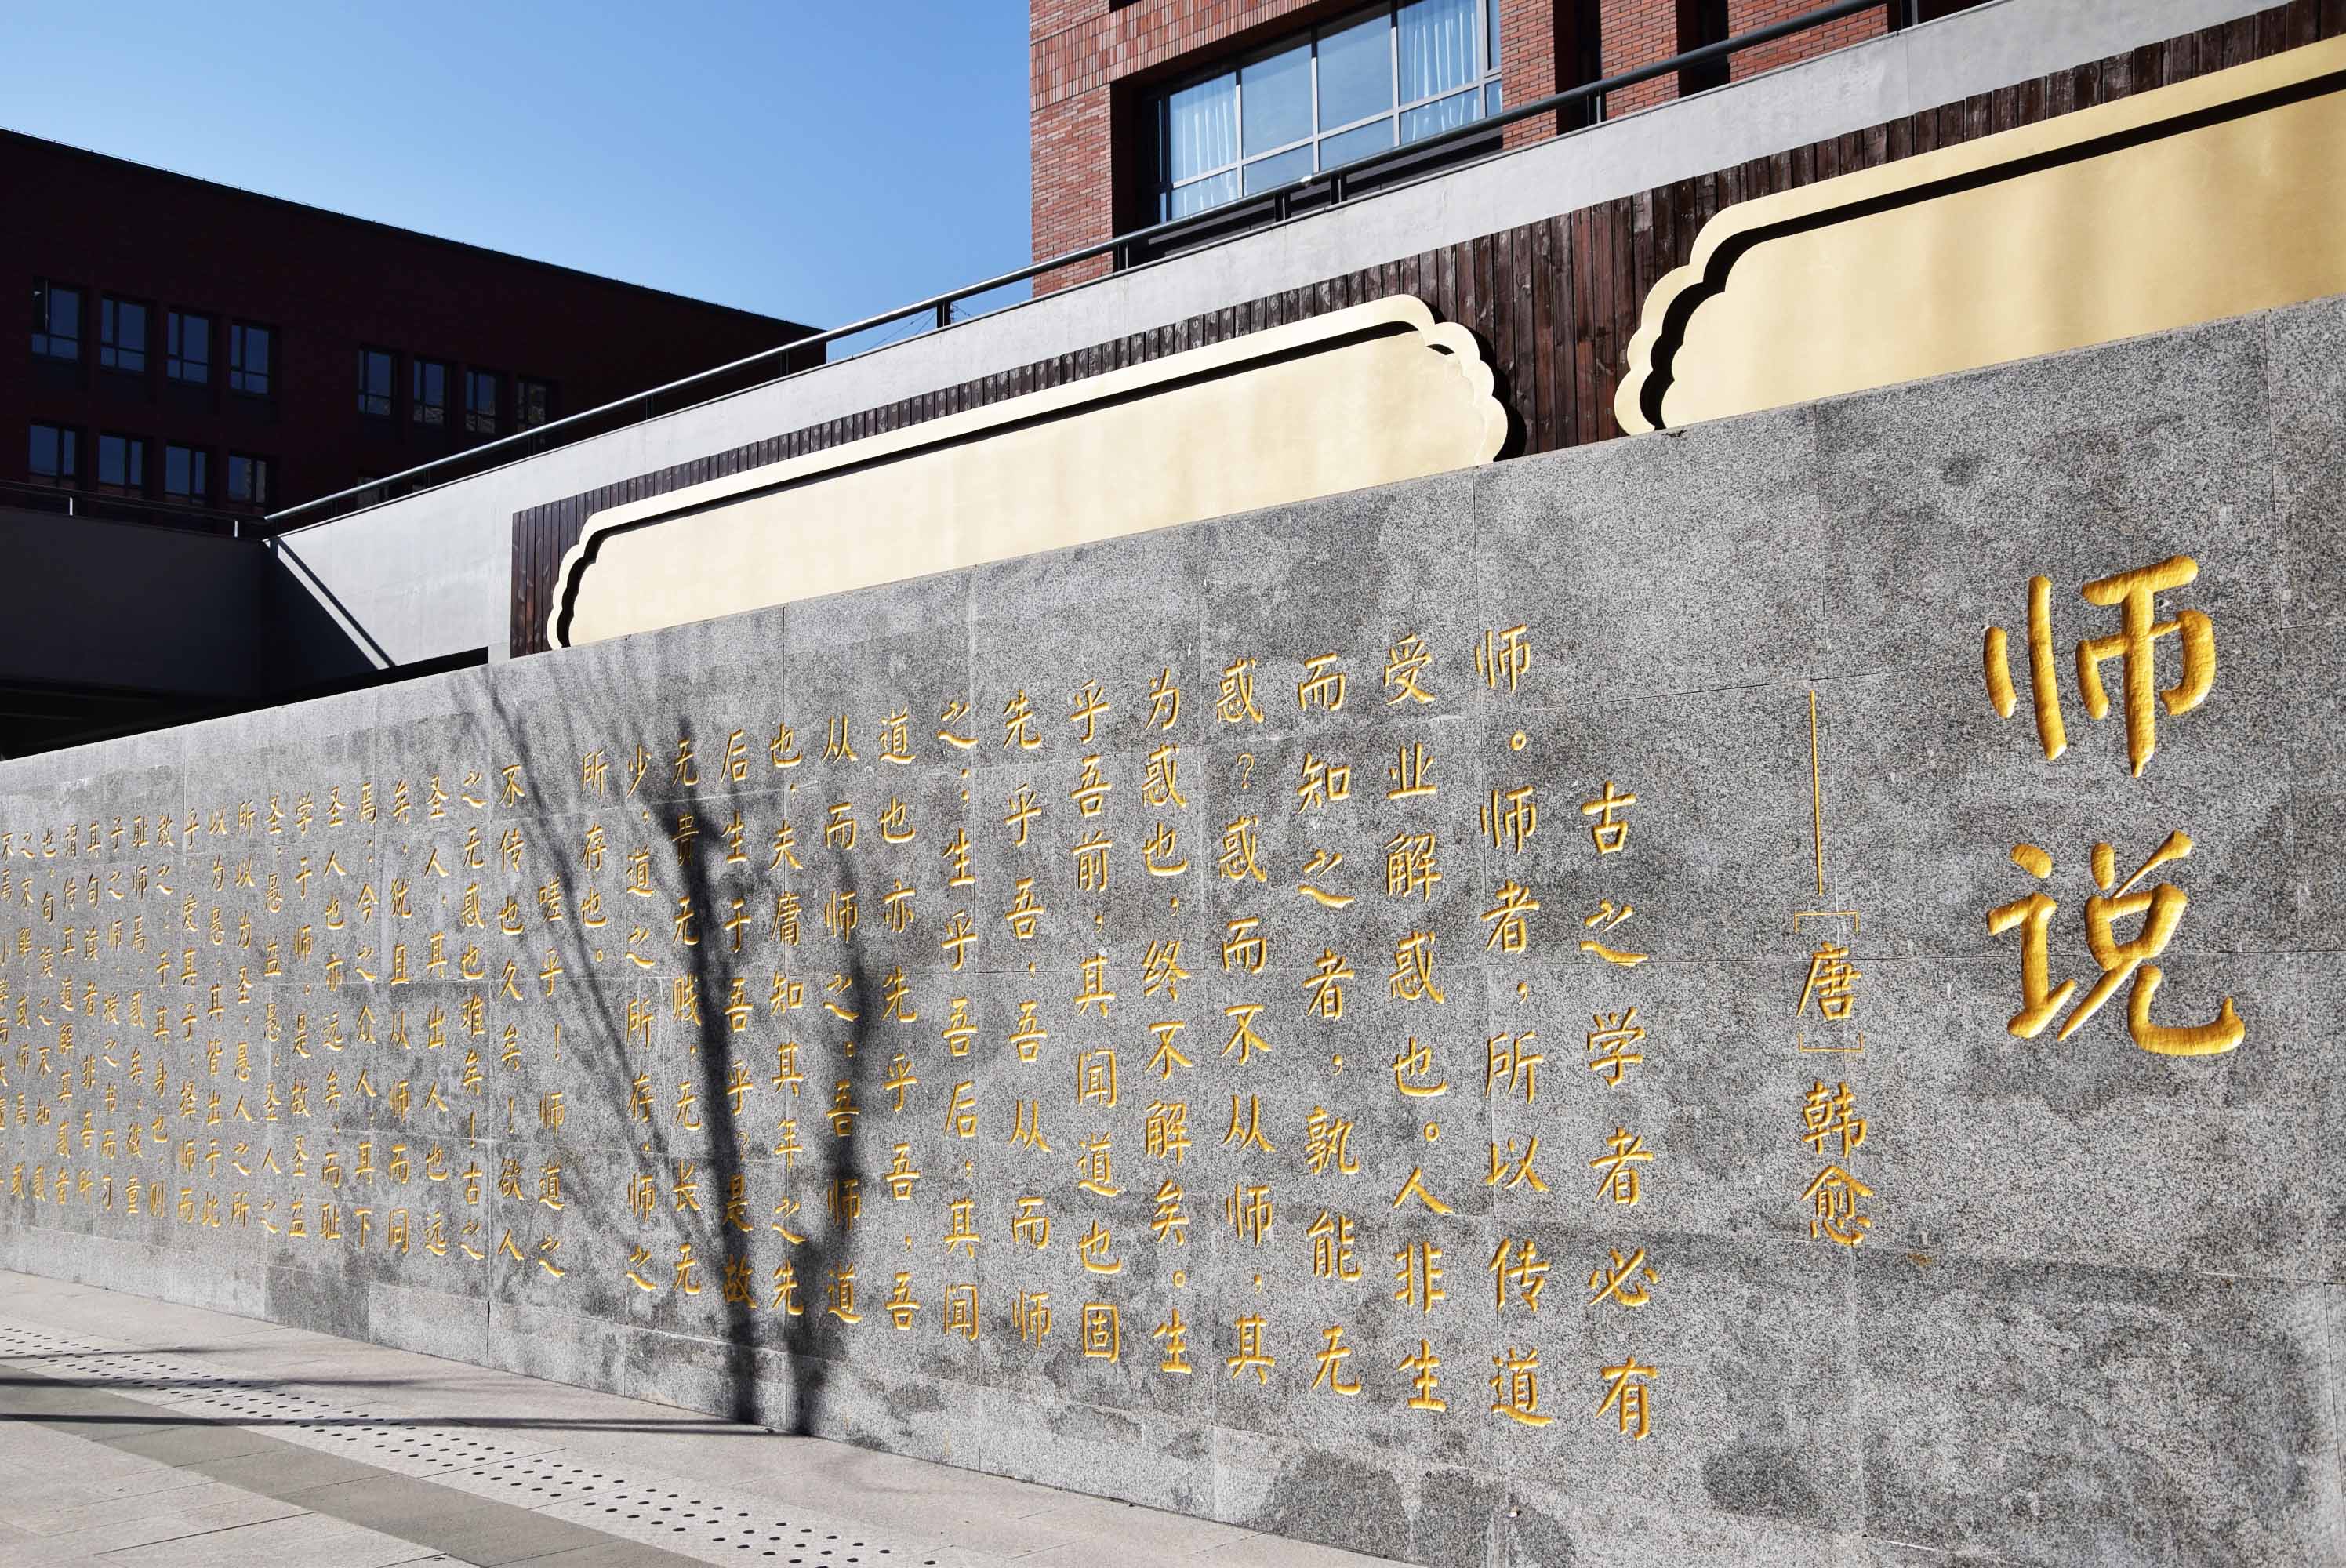 师说
——［唐］韩愈
古之学者必有
师。师者，所以传道
受业解惑也。人非生
而知之者，孰能无
惑？惑而不从师，其
为惑也，终不解矣。生
乎吾前，其闻道也固
先乎吾，吾从而师
之；生乎吾后，其闻
道也亦先乎吾，吾
从而师之。吾师道
也，夫庸知其年之先
后生于吾乎？是故
无贵无贱，无长无
少，道之所存，师之
所存也。
嗟乎！师道之
不传也久矣！欲人
之无惑也难矣！古之
圣人，其出人也远
矣，犹且从师而问
焉；今之众人，其下
圣人也亦远矣，而耻
学于师。是故圣益
圣，愚益愚。圣人之
所以为圣，愚人之所
以为愚，其皆出于此
乎？爱其子，择师而
教之；于其身也，则
耻师焉，惑矣。彼童
子之师，授之书而习
其句读者，非吾所
谓传其道解其惑者
也。句读之不知，惑
之不解，或师焉，或